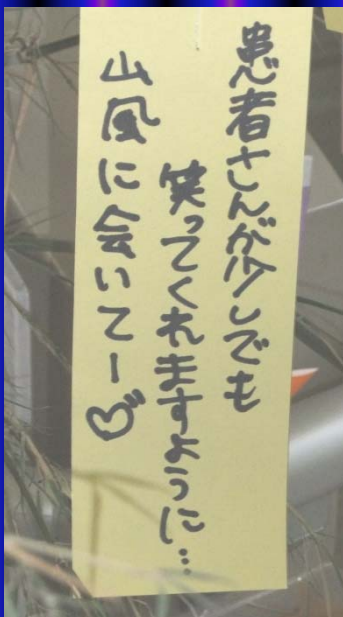 患者さんが少しでも
笑ってくれますように…
山風に会いてー♡